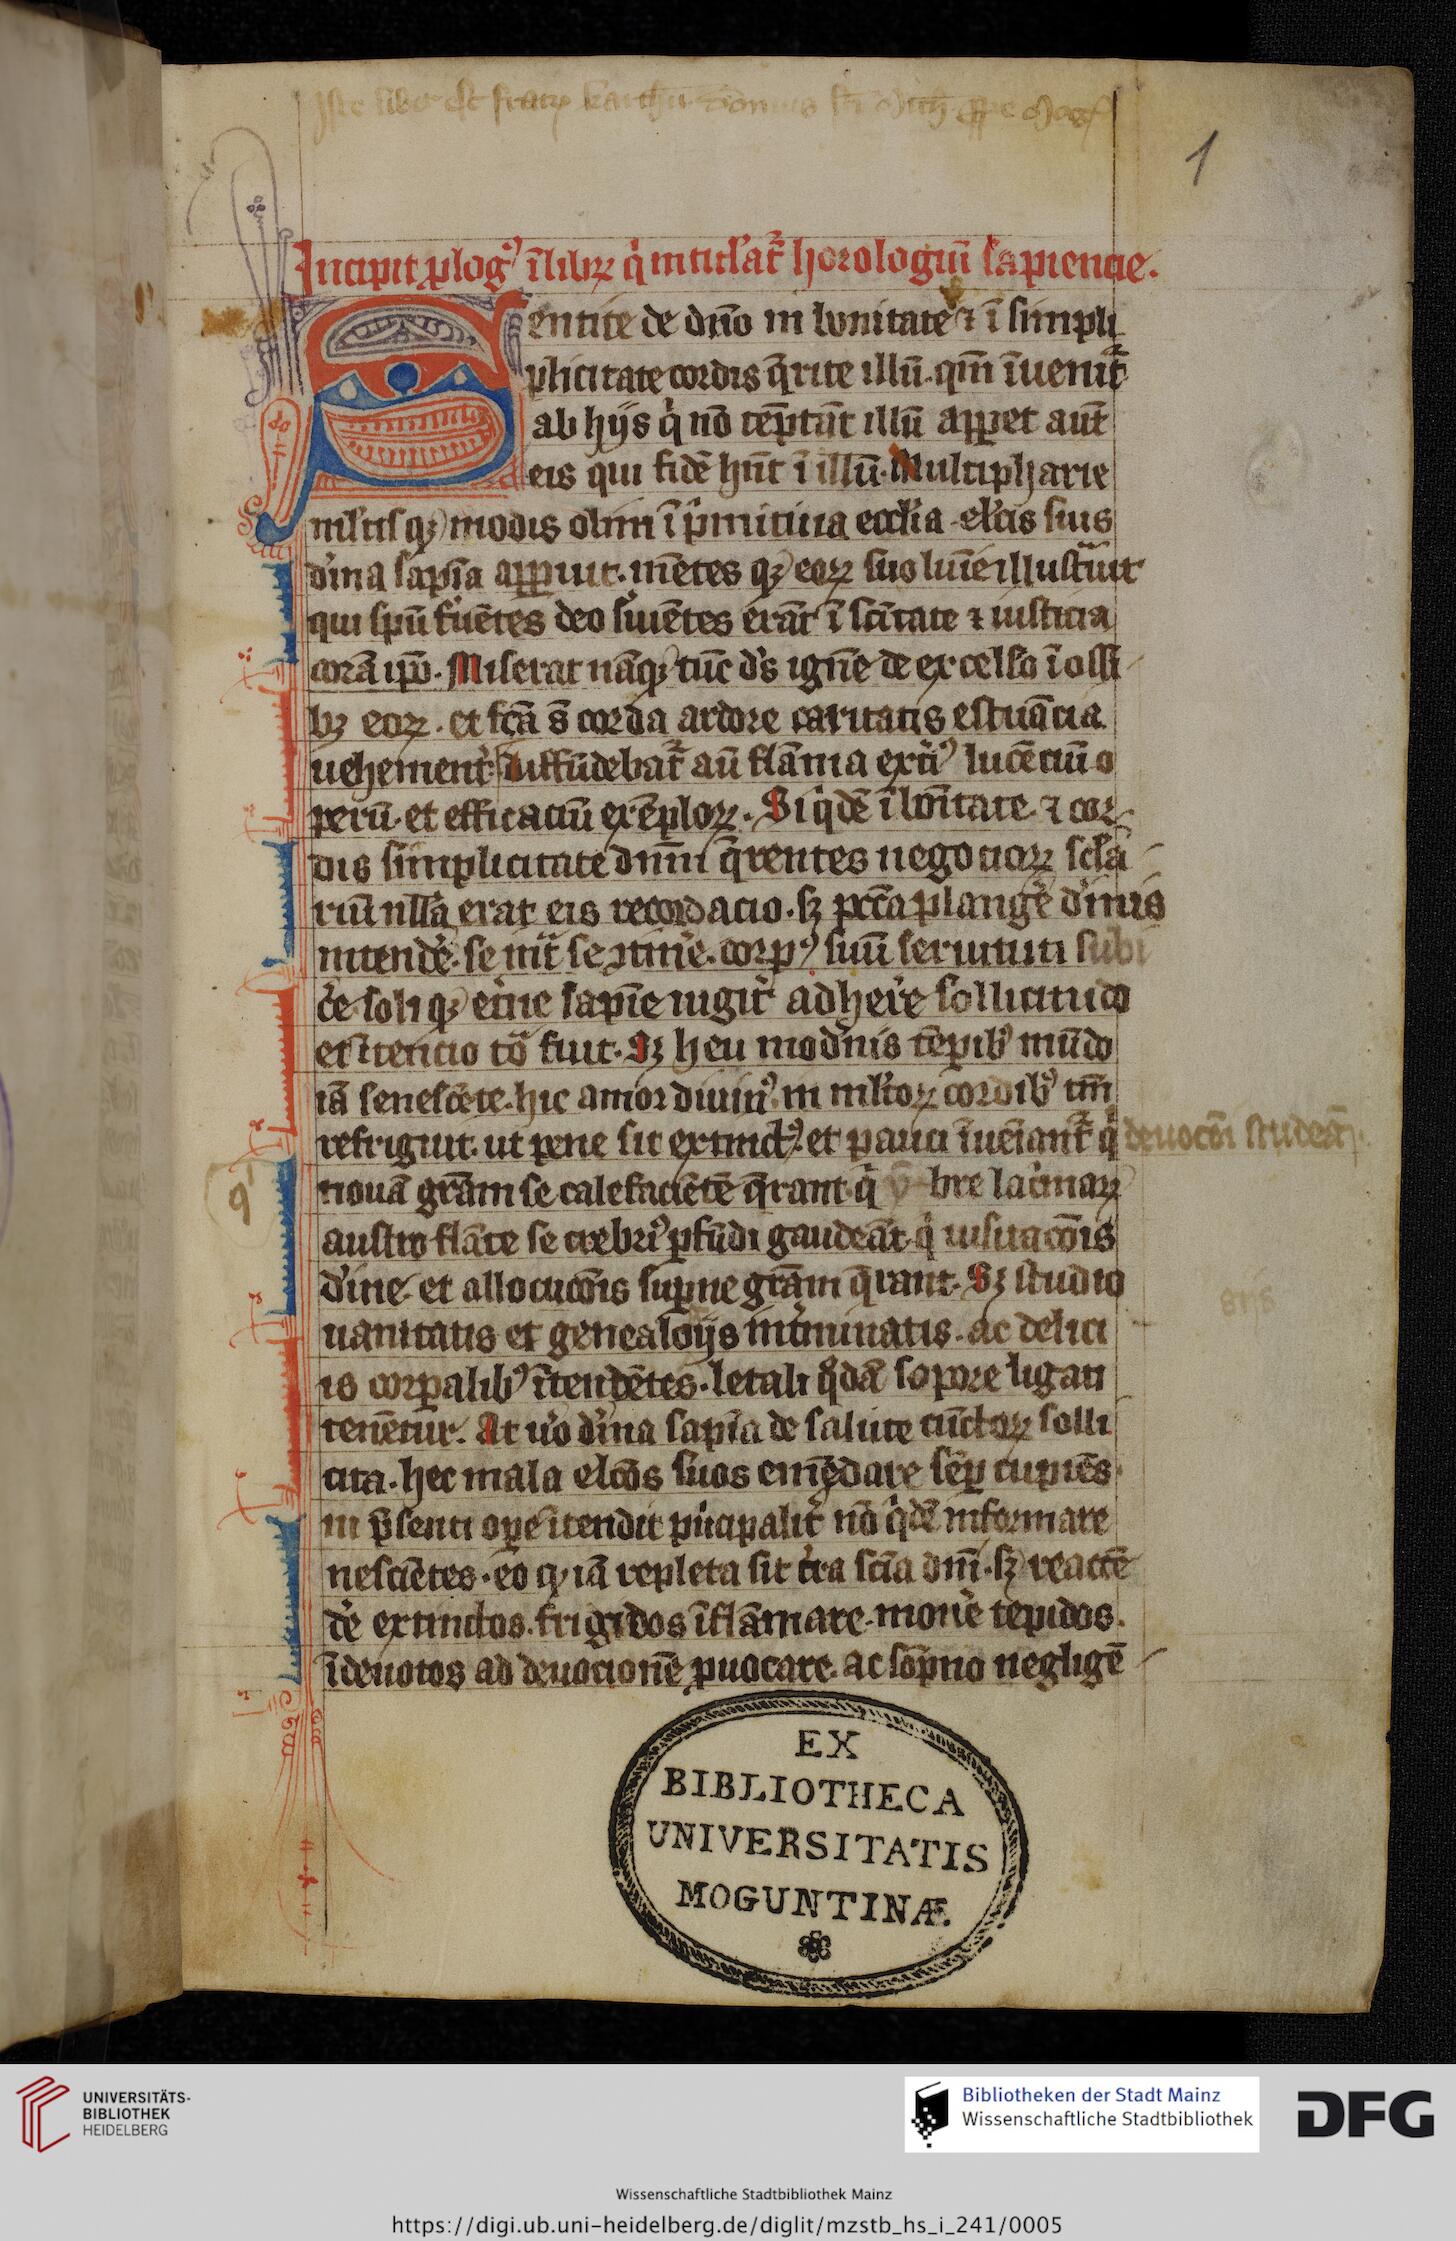 Iste liber est fratrum carthus
1
Incipit plog⁹ ī libꝝ q̇ intitulat᷑ horologiū sapiencie.
Sentite de dn̄o in bonitate ⁊ ī simpli
plicitate cordis q̄rite illū. qm̄ īuenit᷑
ab hijs q̇ nō tēptāt illū apꝑet aūt
eis qui fidē hn̄t ī illū. Multipharie
ml̓tisqꝫ modis olim ī p̓mitiua eccl̓ia el̓cīs suis
d̓ina sapīa apꝑuit. mētes qꝫ eoꝝ suo luīe illust̄uit
qui spū fͥuētes deo s̓uiētes erāt ī sc̄itate ⁊ iusticia
corā ip̄o. Miserat nāqꝫ tūc d̄s ignē de excelso ī ossi
bꝫ eoꝝ. et fc̄a s̄ corda ardore caritatis estuācia
uehement᷑. diffūdebat᷑ aū flāma ext̓i⁹ lucēciū o
perū. et efficaciū exēploꝝ. Siq̇dē ī bōitate ⁊ cor
dis simplicitate dnm̄ q̄rentes negocioꝝ sc̄la
riū nll̓a erat eis recordacio. sꝫ pcc̄a plang̓e d̓inis
intend̓e. se int᷑ se ꝯtin̓e. corp⁹ suū seruituti subi
c̓e. soli qꝫ et̓ne sapīe iugit᷑ adher̓e sollicitudo
et ītencio tō fuit. Sꝫ heu mod̓nis tēpib⁹ mūdo
iā senescēte. hic amor diuin⁹ in ml̓toꝝ cordib⁹ tm̄
refriguit. ut pene sit extinct⁹. et pauci īueiant᷑ q̇ deuocōi studeāt
nouā grām se calefaciētē q̄rant. q̇ bre lac̓maꝝ
austro flāte se crebri⁹ ꝑfūdi gaudeāt. q̇ uisitacōis
d̓ine et allocucōis sup̄ne grām q̄rant. Sꝫ studio
uanitatis et genealoijs int̓minatis. ac delici
is corꝑalib⁹ ītendētes. letali q̇dā sopore ligati
tenētur. At u̓o d̓ina sapīa de salute cūctoꝝ solli
cita. hec mala elc̄os suos emēdare sēꝑ cupiēs.
in p̄senti oꝑe ītendit pͥncipalit᷑ nō q̇dē informare
nesciētes. eo qꝫ iā repleta sit t̓ra sc̄ia dn̄i. sꝫ reaccē
d̓e extinctos. frigidos īflāmare. mou̓e tepidos.
īdeuotos ad deuocionē ꝓuocare. ac sōpno negligē
EX
BIBLIOTHECA
UNIVERSITATIS
MOGUNTINÆ.
UNIVERSITÄTS-
BIBLIOTHEK
HEIDELBERG
Bibliotheken der Stadt Mainz
Wissenschaftliche Stadtbibliothek
DFG
Wissenschaftliche Stadtbibliothek Mainz
https://digi.ub.uni-heidelberg.de/diglit/mzstb_hs_i_241/0005